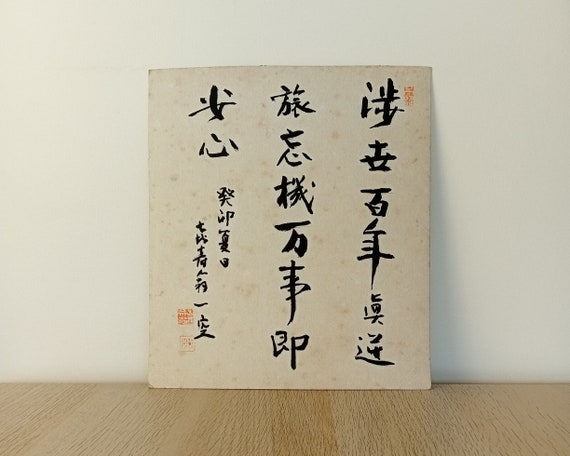 渉世百年眞逆
旅忘機万事即
安心
癸卯夏日
㐂寿翁一空